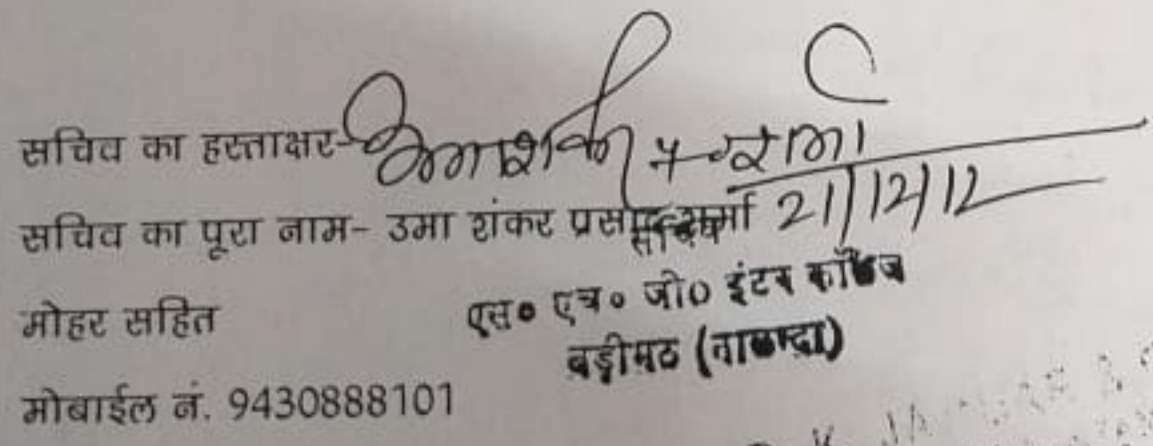 सचिव का हस्ताक्षर- उमाशंकर प्र० शर्मा
सचिव का पूरा नाम- उमा शंकर प्रसाद शर्मा 21/12/12
सचिव
मोहर सहित एस० एच० जी० इंटर कॉलेज
बड़ीमठ (नालन्दा)
मोबाईल नं. 9430888101